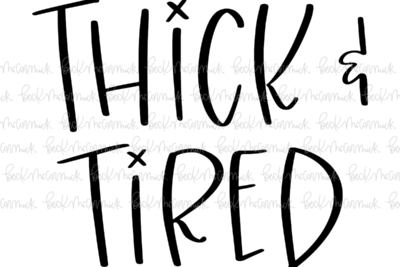 THiCK &
TiRED